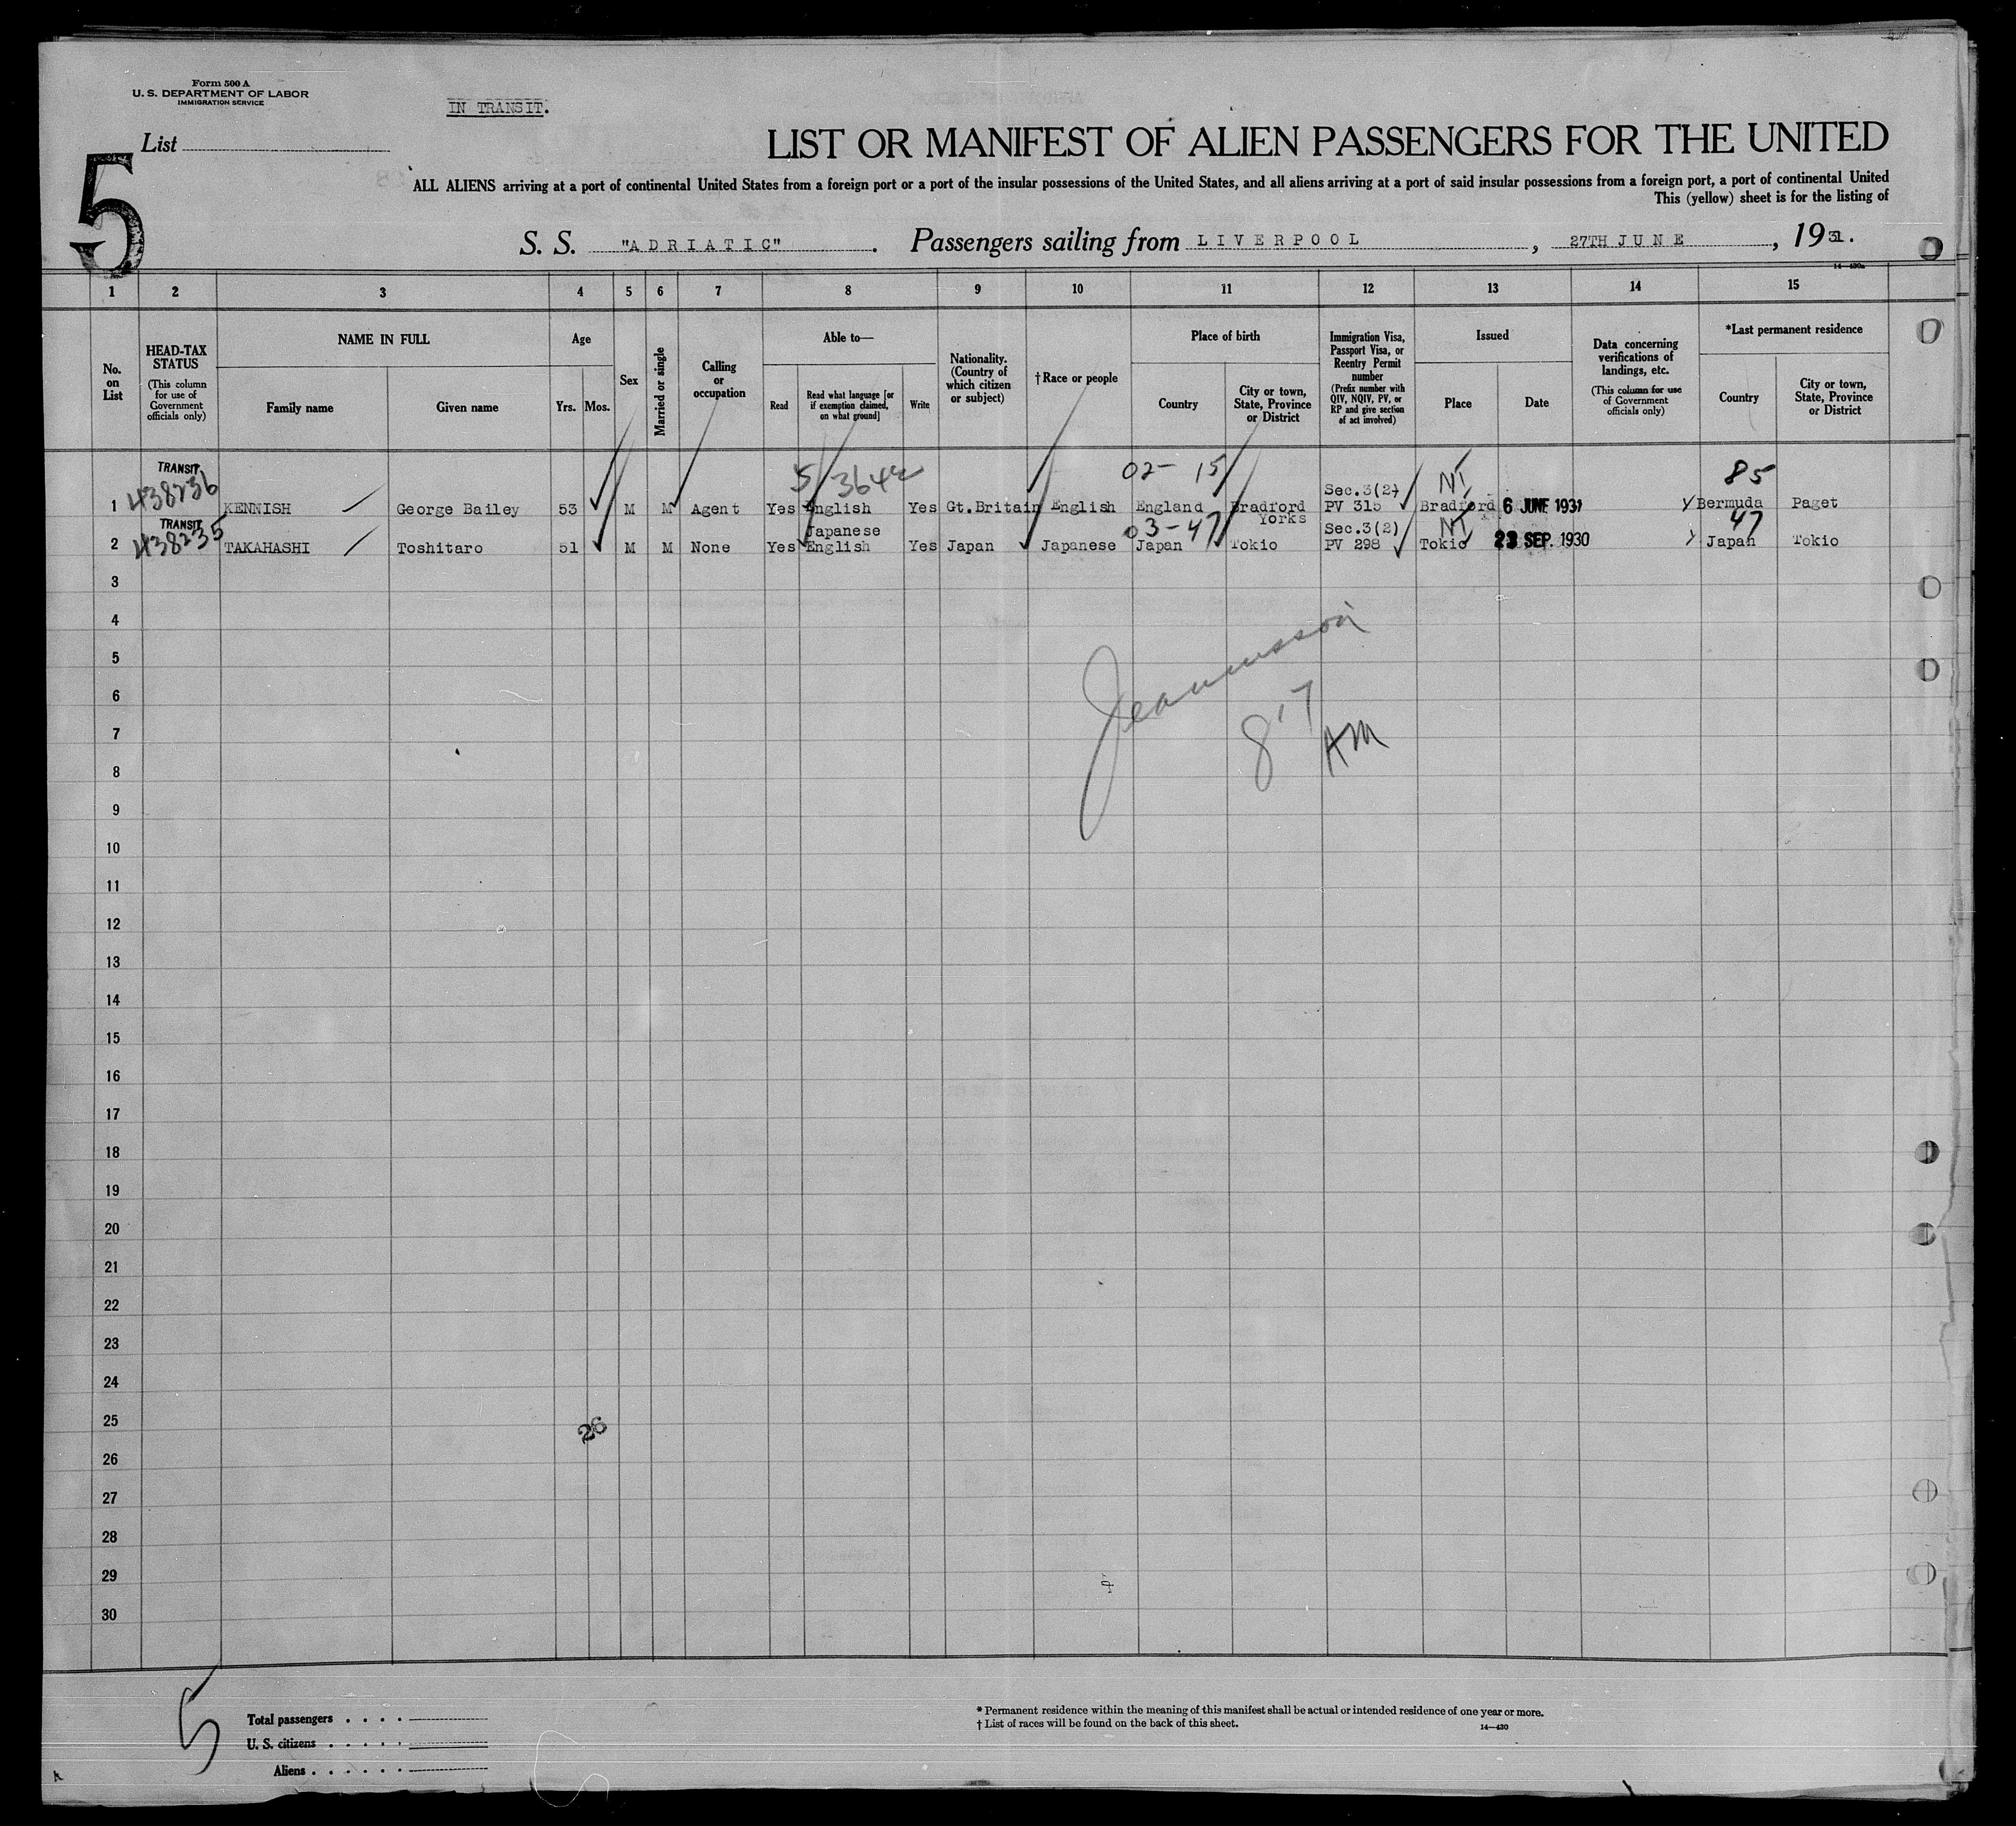 Form 500 A
U. S. DEPARTMENT OF LABOR
IMMIGRATION SERVICE
IN TRANSIT.
List
5
LIST OR MANIFEST OF ALIEN PASSENGERS FOR THE UNITED
ALL ALIENS arriving at a port of continental United States from a foreign port or a port of the insular possessions of the United States, and all aliens arriving at a port of said insular possessions from a foreign port, a port of continental United
This (yellow) sheet is for the listing of
S. S. "ADRIATIC". Passengers sailing from LIVERPOOL, 27TH JUNE, 1931.
14—430a
1 2 3 4 5 6 7 8 9 10 11 12 13 14 15
No. on List
HEAD-TAX STATUS (This column for use of Government officials only)
NAME IN FULL
Family name
Given name
Age
Yrs. Mos.
Sex
Married or single
Calling or occupation
Able to—
Read
Read what language [or if exemption claimed, on what ground]
Write
Nationality. (Country of which citizen or subject)
†Race or people
Place of birth
Country
City or town, State, Province or District
Immigration Visa, Passport Visa, or Reentry Permit number (Prefix number with QIV, NQIV, PV, or RP and give section of act involved)
Issued
Place
Date
Data concerning verifications of landings, etc. (This column for use of Government officials only)
*Last permanent residence
Country
City or town, State, Province or District
TRANSIT 5/3642 02- 15 NI 85
438236 Sec.3(2)
1 KENNISH George Bailey 53 M M Agent Yes English Yes Gt.Britain English England Bradford Yorks PV 315 Bradford 6 JUNE 1931 Bermuda Paget
TRANSIT Japanese 03-47 Sec.3(2) NI 47
438235
2 TAKAHASHI Toshitaro 51 M M None Yes English Yes Japan Japanese Japan Tokio PV 298 Tokio 23 SEP. 1930 Japan Tokio
3
4
5
6
7
8
9
10
11
12
13
14
15
16
17
18
19
20
21
22
23
24
25
26
27
28
29
30
8'7
AM
26
5
Total passengers
U. S. citizens
Aliens
* Permanent residence within the meaning of this manifest shall be actual or intended residence of one year or more.
† List of races will be found on the back of this sheet.
14—430